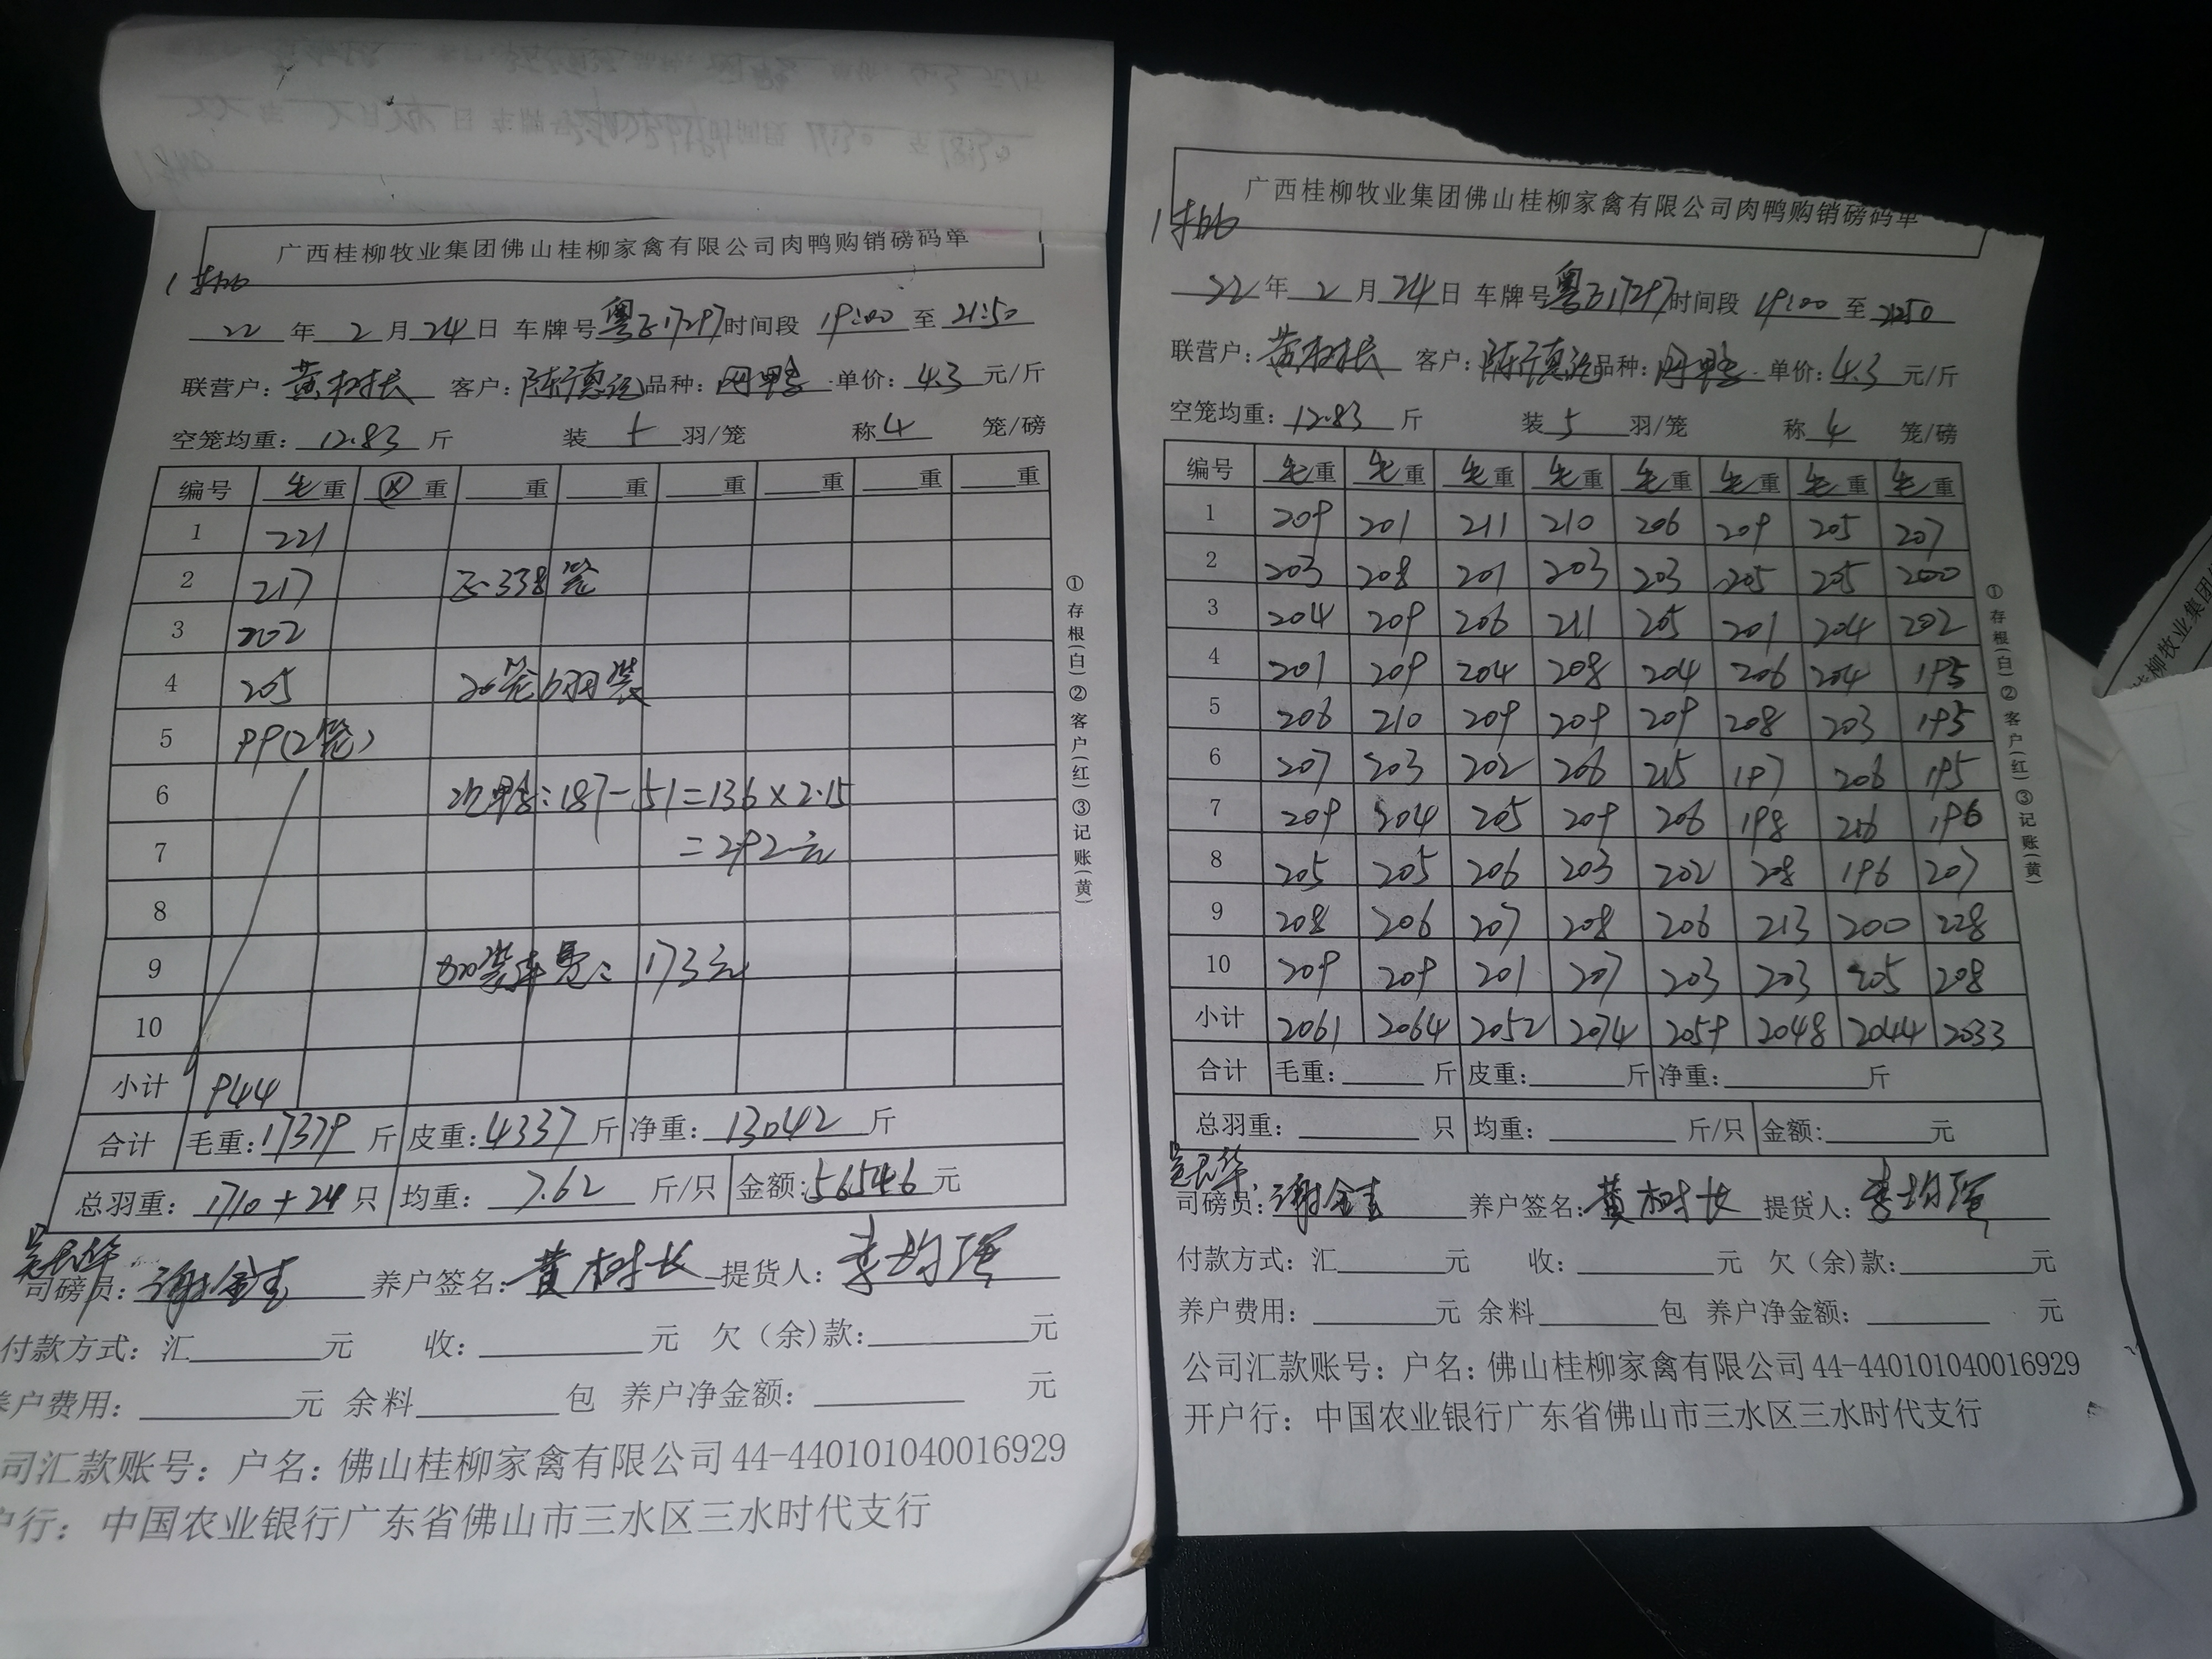 广西桂柳牧业集团佛山桂柳家禽有限公司肉鸭购销磅码单
22 年 2 月 24 日 车牌号 粤 17297 时间段 19:00 至 21:50
联营户: 黄树长 客户: 陈德 品种: 肉鸭 单价: 4.3 元/斤
空笼均重: 12.83 斤 装 5 羽/笼 称 4 笼/磅
编号 毛重 重 重 重 重 重 重 重
1 221
2 217 338 笼
3 202
4 205 20笼6羽装
5 99(2笼)
6 鸭: 187-51=136×2.15
7 =292元
8
9 加装车费: 173元
10
小计 944
合计 毛重: 17379 斤 皮重: 4337 斤 净重: 13042 斤
总羽重: 1710+24 只 均重: 7.62 斤/只 金额: 56546 元
司磅员: 谢金 养户签名: 黄树长 提货人: 李均强
付款方式: 汇 元 收: 元 欠(余)款: 元
养户费用: 元 余料 包 养户净金额: 元
司汇款账号: 户名: 佛山桂柳家禽有限公司 44-440101040016929
户行: 中国农业银行广东省佛山市三水区三水时代支行
①存根(白)②客户(红)③记账(黄)
广西桂柳牧业集团佛山桂柳家禽有限公司肉鸭购销磅码单
22 年 2 月 24 日 车牌号 粤 17297 时间段 19:00 至 2150
联营户: 黄树长 客户: 陈德 品种: 肉鸭 单价: 4.3 元/斤
空笼均重: 12.83 斤 装 5 羽/笼 称 4 笼/磅
编号 毛重 毛重 毛重 毛重 毛重 毛重 毛重 毛重
1 209 201 211 210 206 209 205 207
2 203 208 201 203 203 205 205 200
3 204 209 206 211 205 201 204 202
4 201 209 204 208 204 206 204 195
5 206 210 209 209 209 208 203 195
6 207 203 202 206 215 197 206 195
7 209 204 205 209 206 198 216 196
8 205 205 206 203 202 208 196 207
9 208 206 207 208 206 213 200 228
10 209 209 201 207 203 203 205 208
小计 2061 2064 2052 2074 2059 2048 2044 2033
合计 毛重: 斤 皮重: 斤 净重: 斤
总羽重: 只 均重: 斤/只 金额: 元
司磅员: 谢金 养户签名: 黄树长 提货人: 李均强
付款方式: 汇 元 收: 元 欠(余)款: 元
养户费用: 元 余料 包 养户净金额: 元
公司汇款账号: 户名: 佛山桂柳家禽有限公司 44-440101040016929
开户行: 中国农业银行广东省佛山市三水区三水时代支行
①存根(白)②客户(红)③记账(黄)
柳牧业集团